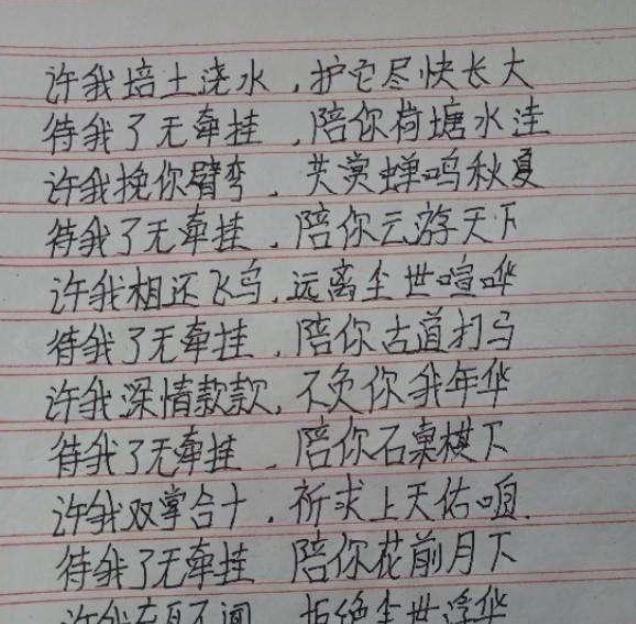 许我培土浇水，护它尽快长大
待我了无牵挂，陪你荷塘水洼
许我挽你臂弯，共赏蝉鸣秋夏
待我了无牵挂，陪你云游天下
许我相还飞鸟，远离尘世喧哗
待我了无牵挂，陪你古道打马
许我深情款款，不负你我年华
待我了无牵挂，陪你石桌棋下
许我双掌合十，祈求上天佑咱.
待我了无牵挂 陪你花前月下
许我 不闻 拒绝尘世浮华